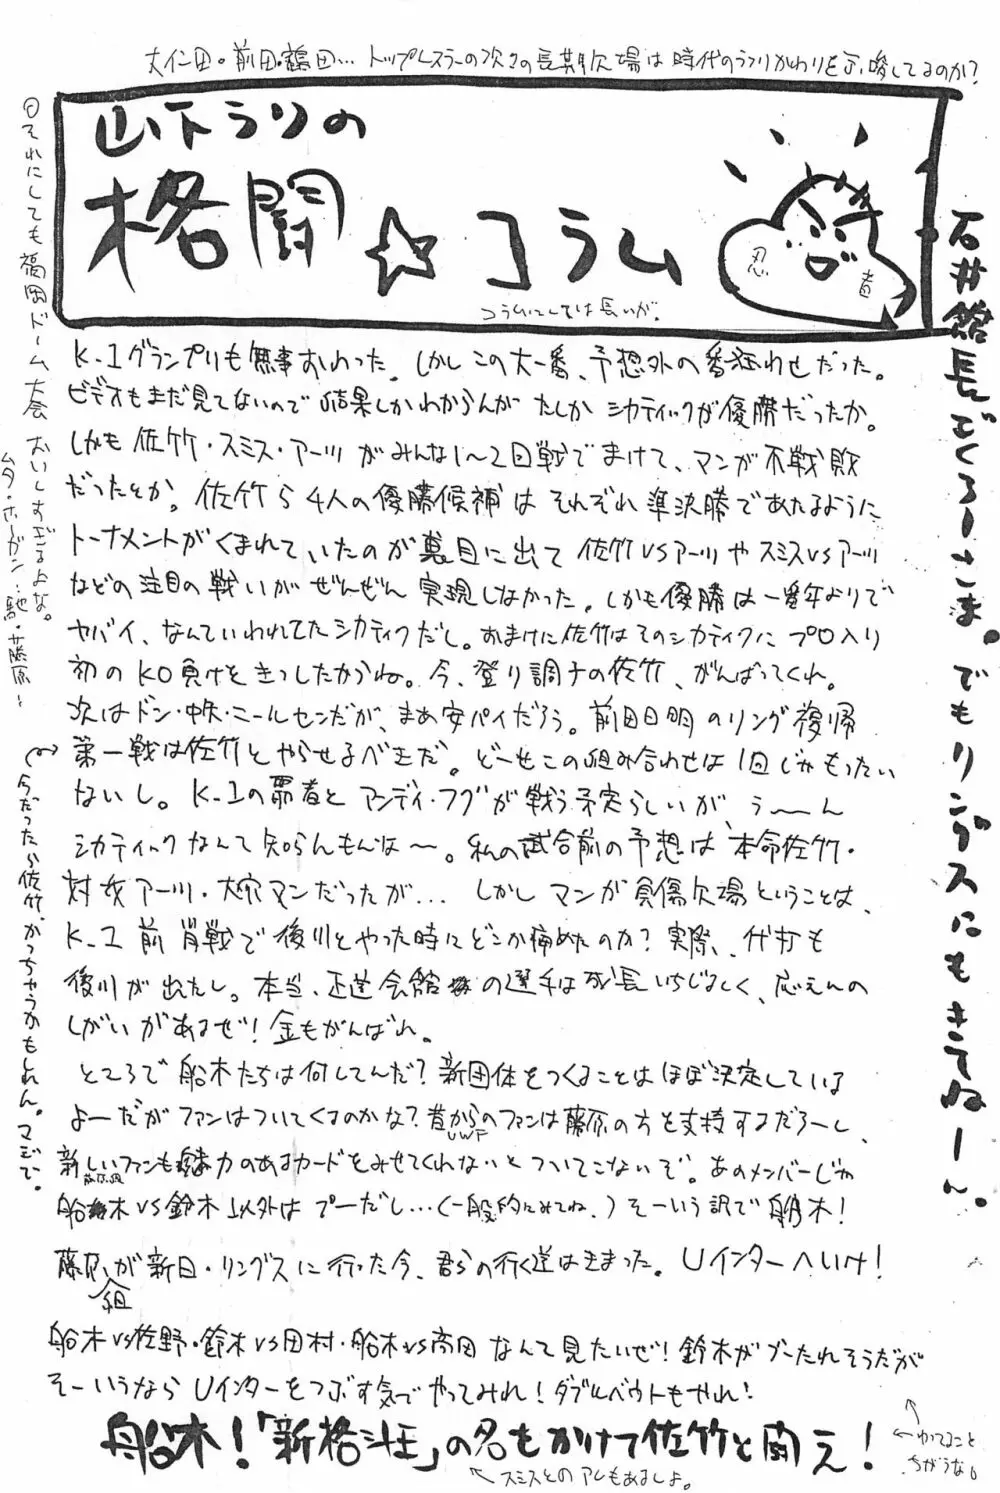 大仁田・前田・鶴田… トップレスラーの次々の長期欠場は時代のうつりかわりを示唆してるのか?
山下うりの
格闘☆コラム
コラムにしては長いが。
忍
者
石井館長ごくろーさま。でもリングスにもきてねーん。
それにしても福岡ドーム大会 おいしすぎるよな。
ムタ・ホーガン・馳・藤原
K-1グランプリも無事おわった。しかしこの大一番、予想外の番狂わせだった。
ビデオもまだ見てないので結果しかわからんが たしか シカティックが優勝だったか。
しかも 佐竹・スミス・アーツ がみんな1〜2回戦でまけて、マンが不戦敗
だったとか。佐竹ら4人の優勝候補は それぞれ準決勝であたるように
トーナメントがくまれていたのが裏目に出て 佐竹VSアーツやスミスVSアーツ
などの注目の戦いが ぜんぜん 実現しなかった。しかも優勝は一番年よりで
ヤバイ、なんていわれてたシカティクだし。おまけに佐竹はそのシカティクに プロ入り
初のKO負けをきっしたからね。今、登り調子の佐竹、がんばってくれ。
次はドン・中矢・ニールセンだが、まあ安パイだろう。前田日明のリング復帰
第一戦は佐竹とやらせるべきだ。どーもこの組み合わせは1回じゃもったい
ないし。K-1の覇者と アンディ・フグが戦う予定らしいが、う〜〜ん
シカティックなんて知らんもんな〜。私の試合前の予想は 本命佐竹・
対抗アーツ・大穴マンだったが… しかしマンが負傷欠場ということは、
K-1 前哨戦で後川とやった時にどこか痛めたのか? 実際、代打も
後川が出たし。本当、正道会館の選手は成長いちじるしく、応えんの
しがいがあるぜ! 金もがんばれ。
ところで 船木たちは何してんだ? 新団体をつくることはほぼ決定している
よーだがファンはついてくるのかな? 昔からのファンは藤原の方を支持するだろーし、
UWF
新しいファンも魅力のあるカードをみせてくれないと ついてこないぞ。あのメンバーじゃ
船木VS鈴木以外は プーだし…(一般的にみてね。) そーいう訳で 船木!
藤原組が新日・リングスに行った今、君らの行く道はきまった。Uインターへいけ!
船木VS佐野・鈴木VS田村・船木VS高田 なんて見たいぜ! 鈴木がブーたれそうだが
そーいうなら Uインターをつぶす気でやってみれ! ダブルベウトもやれ!
船木!「新格斗王」の名をかけて佐竹と闘え!
スミスとの アレもあるしよ。
ゆってること
ちがうな。
今だったら佐竹、かっちゃうかもしれん。マジで。